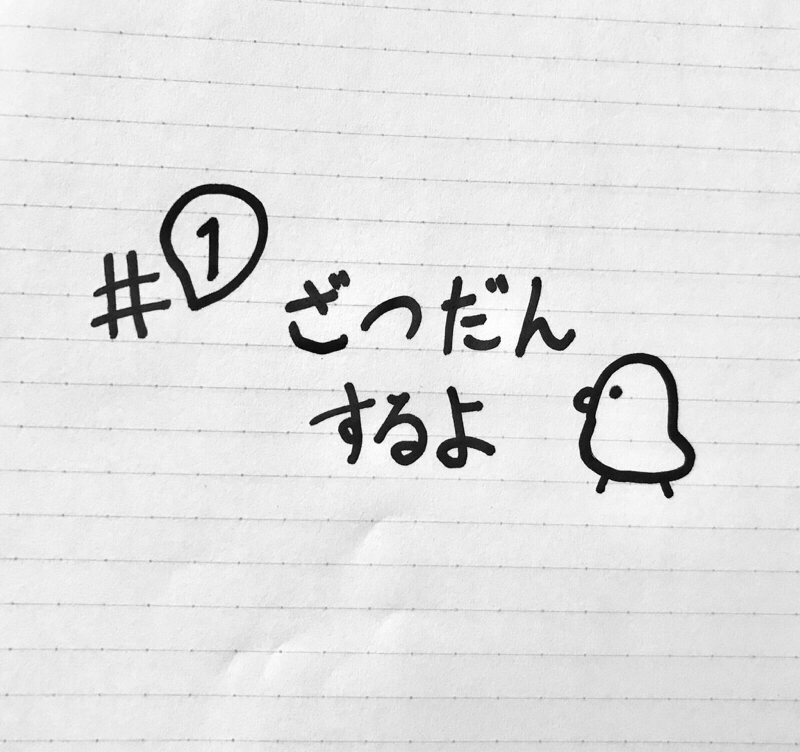 #1 ざつだん
するよ